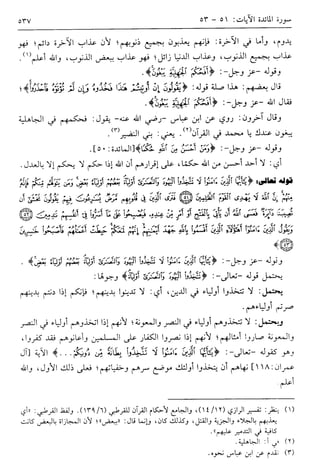 سورة المائدة الآيات: ٥١ - ٥٣
٥٣٧
يدوم، وأما في الآخرة: فإنهم يعذبون بجميع ذنوبهم؛ لأن عذاب الآخرة دائم؛ فهو
عذاب بجميع الذنوب، وعذاب الدنيا زائل؛ فهو عذاب ببعض الذنوب، والله أعلم(١).
وقوله -عز وجل-: ﴿أَفَحُكْمَ الْجَاهِلِيَّةِ يَبْغُونَ﴾.
قال بعضهم: هذا صلة قوله: ﴿يَقُولُونَ إِنْ أُوتِيتُمْ هَذَا فَخُذُوهُ وَإِنْ لَمْ تُؤْتَوْهُ فَاحْذَرُوا﴾؛
فقال الله -عز وجل-: ﴿أَفَحُكْمَ الْجَاهِلِيَّةِ يَبْغُونَ﴾.
وقال آخرون: روي عن ابن عباس -رضي الله عنه- يقول: فحكمهم في الجاهلية
يبغون عندك يا محمد في القرآن(٢). يعني: بني النضر(٣).
وقوله -عز وجل-: ﴿وَمَنْ أَحْسَنُ مِنَ اللَّهِ حُكْمًا﴾ [المائدة: ٥٠].
أي: لا أحد أحسن من الله حكمًا، على إقرارهم أن الله إذا حكم لا يحكم إلا بالعدل.
قوله تعالى: ﴿يَا أَيُّهَا الَّذِينَ آمَنُوا لَا تَتَّخِذُوا الْيَهُودَ وَالنَّصَارَى أَوْلِيَاءَ بَعْضُهُمْ أَوْلِيَاءُ بَعْضٍ وَمَنْ يَتَوَلَّهُمْ مِنْكُمْ فَإِنَّهُ
مِنْهُمْ إِنَّ اللَّهَ لَا يَهْدِي الْقَوْمَ الظَّالِمِينَ ۝ فَتَرَى الَّذِينَ فِي قُلُوبِهِمْ مَرَضٌ يُسَارِعُونَ فِيهِمْ يَقُولُونَ نَخْشَى أَنْ
تُصِيبَنَا دَائِرَةٌ فَعَسَى اللَّهُ أَنْ يَأْتِيَ بِالْفَتْحِ أَوْ أَمْرٍ مِنْ عِنْدِهِ فَيُصْبِحُوا عَلَى مَا أَسَرُّوا فِي أَنْفُسِهِمْ نَادِمِينَ ۝
وَيَقُولُ الَّذِينَ آمَنُوا أَهَؤُلَاءِ الَّذِينَ أَقْسَمُوا بِاللَّهِ جَهْدَ أَيْمَانِهِمْ إِنَّهُمْ لَمَعَكُمْ حَبِطَتْ أَعْمَالُهُمْ فَأَصْبَحُوا خَاسِرِينَ
۝﴾
وقوله -عز وجل-: ﴿يَا أَيُّهَا الَّذِينَ آمَنُوا لَا تَتَّخِذُوا الْيَهُودَ وَالنَّصَارَى أَوْلِيَاءَ بَعْضُهُمْ أَوْلِيَاءُ بَعْضٍ﴾.
يحتمل قوله -تعالى-: ﴿لَا تَتَّخِذُوا الْيَهُودَ وَالنَّصَارَى أَوْلِيَاءَ﴾ وجوهًا:
يحتمل: لا تتخذوا أولياء في الدين، أي: لا تدينوا بدينهم؛ فإنكم إذا دنتم بدينهم
صرتم أولياءهم.
ويحتمل: لا تتخذوهم أولياء في النصر والمعونة؛ لأنهم إذا اتخذوهم أولياء في النصر
والمعونة صاروا أمثالهم؛ لأنهم إذا نصروا الكفار على المسلمين وأعانوهم فقد كفروا،
وهو كقوله -تعالى-: ﴿يَا أَيُّهَا الَّذِينَ آمَنُوا لَا تَتَّخِذُوا بِطَانَةً مِنْ دُونِكُمْ...﴾ الآية [آل
عمران: ١١٨] نهاهم أن يتخذوا أولئك موضع سرهم وخفياتهم؛ فعلى ذلك الأول، والله
أعلم.
(١) ينظر: تفسير الرازي (١٤/١٢)، والجامع لأحكام القرآن للقرطبي (١٣٩/٦). ولفظ القرطبي: «أي
يعذبهم بالجلاء والجزية والقتل، وكذلك كان، وإنما قال: «ببعض»؛ لأن المجازاة بالبعض كانت
كافية في التدمير عليهم».
(٢) في أ: الجاهلية.
(٣) تقدم عن ابن عباس نحوه.